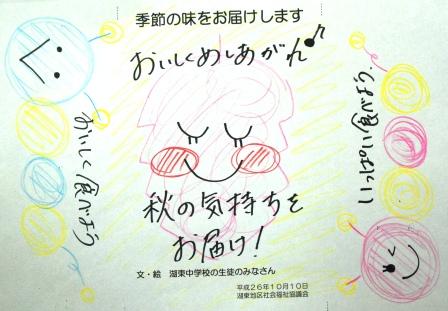 季節の味をお届けします
おいしくめしあがれ♪
おいしく食べよう
いっぱい食べよう.
秋の気持ちを
お届け!
文・絵 湖東中学校の生徒のみなさん
平成26年10月10日
湖東地区社会福祉協議会